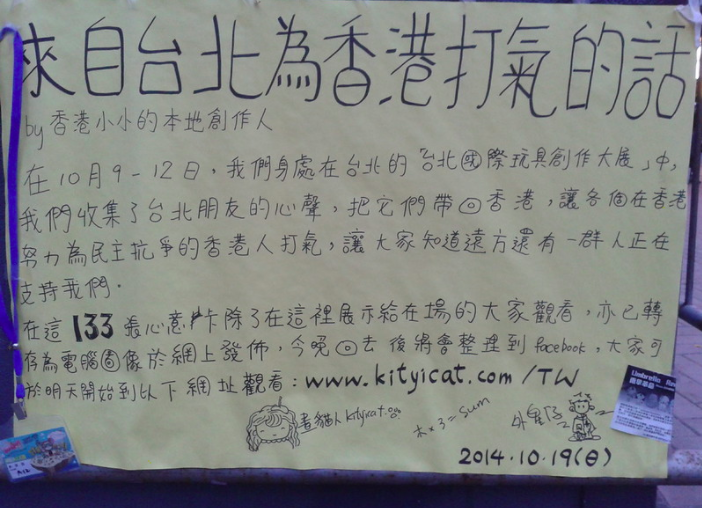 來自台北為香港打氣的話
by 香港小小的本地創作人
在10月9-12日，我們身處在台北的「台北國際玩具創作大展」中，
我們收集了台北朋友的心聲，把它們帶回香港，讓各個在香港
努力為民主抗爭的香港人打氣，讓大家知道遠方還有一群人正在
支持我們。
在這133張心意卡除了在這裡展示給在場的大家觀看，亦已轉
存為電腦圖像於網上發佈，今晚回去後將會整理到facebook，大家可
於明天開始到以下網址觀看：www.kityicat.com/TW
畫貓人kityicat
木x3=Sum
外星
2014.10.19(日)
Umbrella